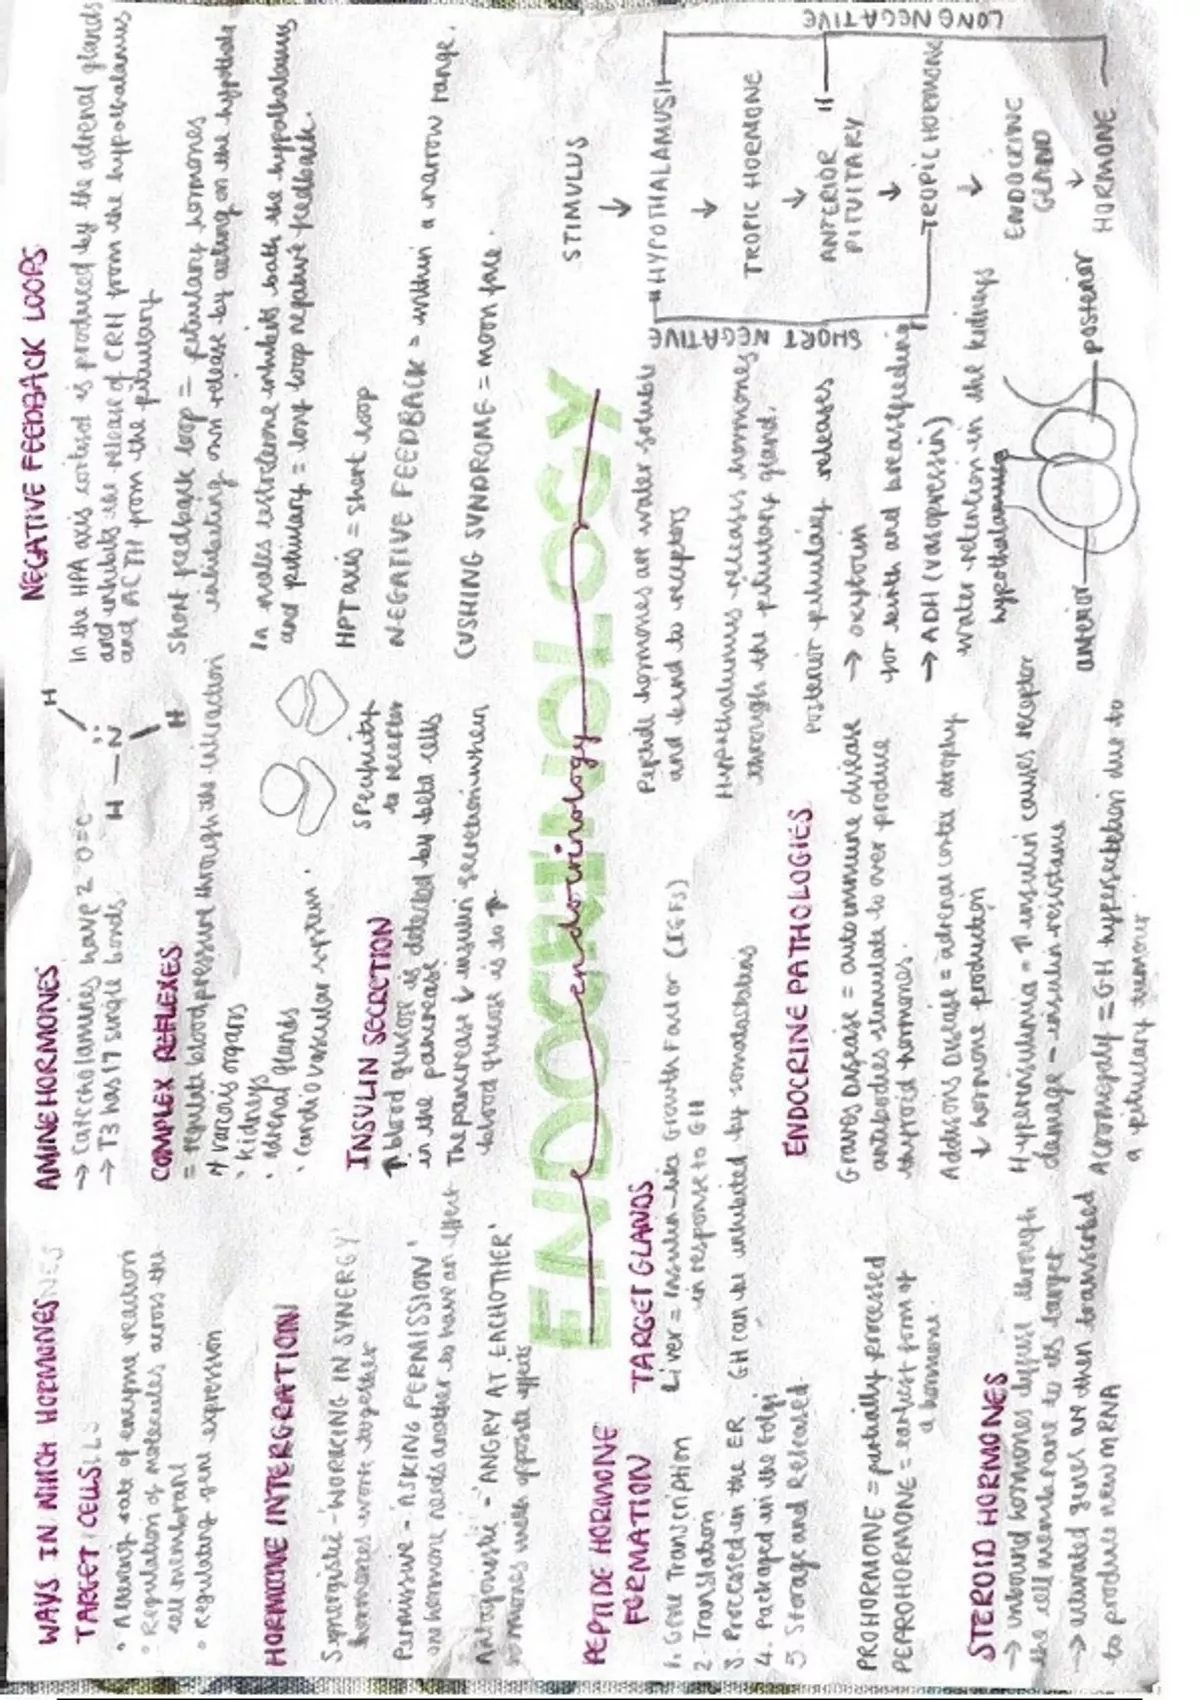 WAYS IN WHICH HORMONES
TARGET CELLS
• Altering rate of enzyme reaction
• Regulation of molecules across the
cell membrane
• Regulating gene expression
HORMONE INTERGRATION
Synergistic - 'WORKING IN SYNERGY'
hormones work together
Permissive - 'ASKING PERMISSION'
one hormone needs another to have an effect
Antagonistic - 'ANGRY AT EACHOTHER'
hormones with opposite effects
AMINE HORMONES
→ Catecholamines have 2 O=C
→ T3 has 17 single bonds
H — N
H
H
COMPLEX REFLEXES
= regulate blood pressure through the interaction
of various organs
• kidneys
• adrenal glands
• cardiovascular system.
INSULIN SECRETION
↑ blood glucose is detected by beta cells
in the pancrease
The pancrease ↓ insulin secretion when
blood glucose is to ↑
specificity
to receptor
NEGATIVE FEEDBACK LOOPS
In the HPA axis cortisol is produced by the adrenal glands
and inhibits the release of CRH from the hypothalamus
and ACTH from the pituitary
Short feedback loop = pituitary hormones
inhibiting own release by acting on the hypothala
In males testosterone inhibits both the hypothalamus
and pituitary = long loop negative feedback.
HPT axis = short loop
NEGATIVE FEEDBACK = within a narrow range.
CUSHING SYNDROME = moon face.
ENDOCRINOLOGY
endocrinology
PEPTIDE HORMONE
FORMATION
1. Gene Transcription
2. Translation
3. Processed in the ER
4. Packaged in the Golgi
5. Storage and Released
PROHORMONE = partially processed
PEPROHORMONE = earliest form of
a hormone.
STEROID HORMONES
→ unbound hormones diffuse through
the cell membrane to its target
→ activated genes are then transcribed
to produce new mRNA
TARGET GLANDS
Liver = Insulin-like Growth Factor (IGFs)
in response to GH
GH can be inhibited by somatostatins
ENDOCRINE PATHOLOGIES
Graves Disease = autoimmune disease
antibodies stimulate to over produce
thyroid hormones.
Addisons Disease = adrenal cortex atrophy
↓ hormone production
Hyperinsulinimia = ↑ insulin causes receptor
damage - insulin resistance
Acromegaly = GH hypersecretion due to
a pituitary tumour
Peptide hormones are water soluble
and bind to receptors
Hypothalamus releases hormones
through the pituitary gland.
Posterior pituitary releases
→ oxytocin
for birth and breastfeeding
→ ADH (vasopressin)
water retention in the kidneys
hypothalamus
anterior
posterior
STIMULUS
↓
HYPOTHALAMUS
↓
TROPIC HORMONE
↓
ANTERIOR
PITUITARY
↓
TROPIC HORMONE
↓
ENDOCRINE
GLAND
↓
HORMONE
SHORT NEGATIVE
LONG NEGATIVE